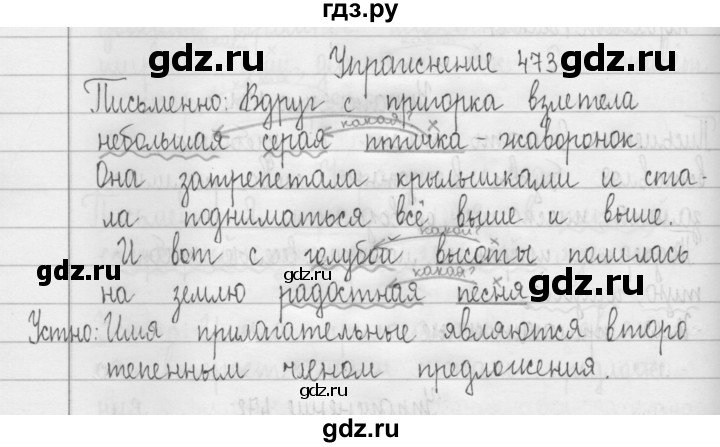 гдз.ру
gdz.ru gdz.ru
Упражнение 473
Письменно: Вдруг с пригорка взлетела
какая?
небольшая серая птичка - жаворонок
Она затрепетала крылышками и ста-
ла подниматься всё выше и выше.
какой?
И вот с голубой высоты полилась
gdz.ru gdz.ru gdz.ru
какая?
на землю радостная песня
Устно: Имя прилагательные являются второ
степенным членом предложения.
gdz.ru gdz.ru